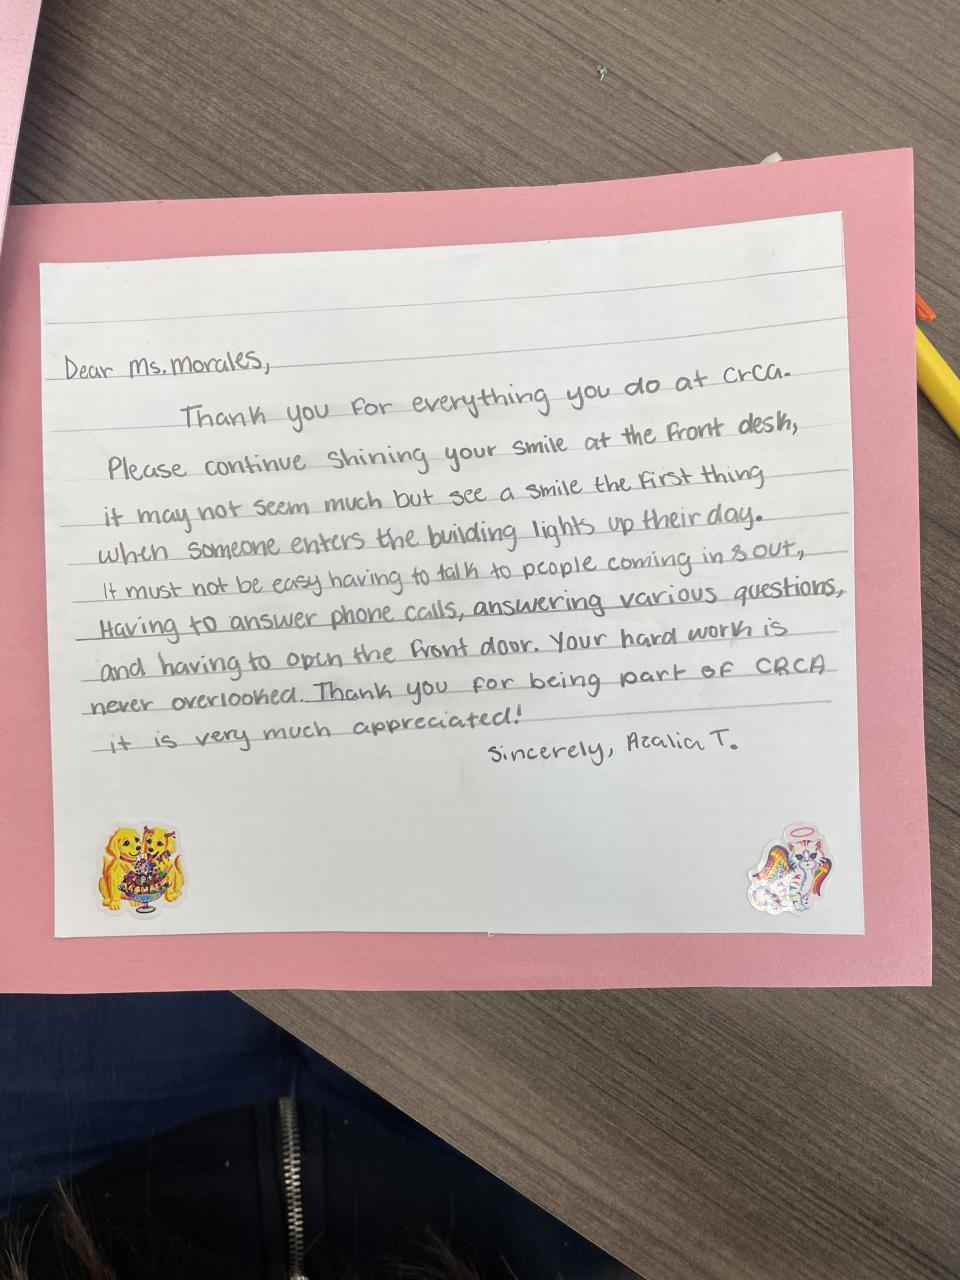 Dear Ms. Morales,
Thank you for everything you do at crca.
Please continue shining your smile at the front desk,
it may not seem much but see a smile the first thing
when someone enters the building lights up their day.
It must not be easy having to talk to people coming in & out,
Having to answer phone calls, answering various questions,
and having to open the front door. Your hard work is
never overlooked. Thank you for being part of CRCA
it is very much appreciated!
Sincerely, Azalia T.